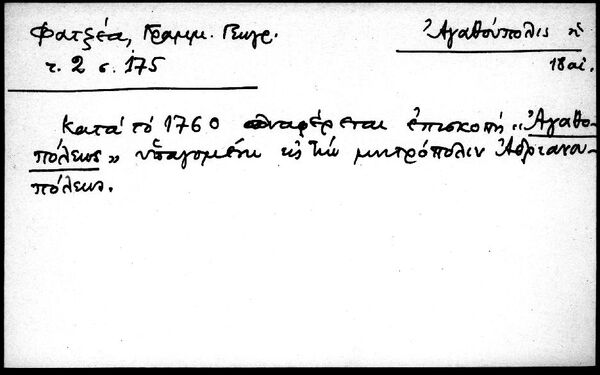 Φατζέα, Γραμμ. Γεωγρ.
τ. 2 σ. 175
Ἀγαθούπολις ἡ
18 αἰ.
Κατά τό 1760 ἀναφέρεται ἐπισκοπή "Ἀγαθο-
πόλεως" ὑπαγομένη εἰς τήν μητρόπολιν Ἀδριανου-
πόλεως.